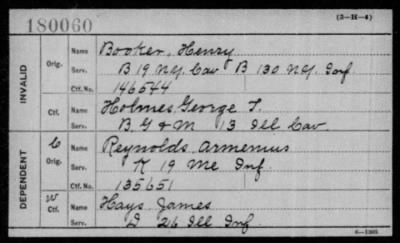 180060
(3—H—4)
INVALID
Orig. Name Booker, Henry
Serv. B 19 N.Y. Cav B 130 N.Y. Inf.
Ctf. No. 146544
Ctf. Name Holmes George T.
Serv. B. G & M 13 Ill Cav.
DEPENDENT
C Orig. Name Reynolds Armenius
Serv. K 19 Me Inf.
Ctf. No. 135651
W Ctf. Name Hays James
Serv. D 26 Ill Inf.